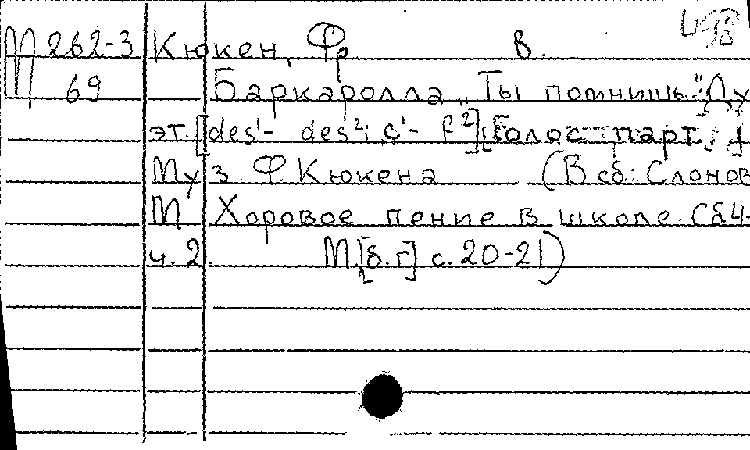 П 262-3 Кюкен, Ф. в.
69 Баркаролла "Ты помнишь". Ду
эт. [des¹- des²; c¹- f²]. Голос. парт.
Муз. Ф Кюкена (В сб: Слонов
М Хоровое пение в школе. Сб4.
ч. 2. М. [б.г] с. 20-21)